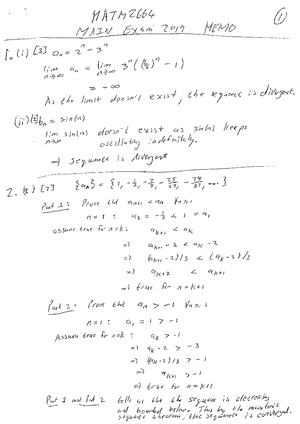 MATM2664
MAIN EXAM 2019 MEMO
①
1. (i) [3] aₙ = 2ⁿ - 3ⁿ
lim n→∞ aₙ = lim n→∞ 3ⁿ((⅔)ⁿ - 1)
= -∞
As the limit doesn't exist, the sequence is divergent.
(ii) bₙ = sin(n)
lim n→∞ sin(n) doesn't exist as sin(n) keeps
oscillating indefinitely.
⇒ sequence is divergent
2. [7] {aₙ} = {1, -1/3, -7/9, -25/27, -79/81, ...}
Part 1: Prove that aₙ₊₁ < aₙ ∀n≥1
n=1: a₂ = -1/3 < 1 = a₁
assume true for n=k: aₖ₊₁ < aₖ
⇒ aₖ₊₁ - 2 < aₖ - 2
⇒ (aₖ₊₁ - 2)/3 < (aₖ - 2)/3
⇒ aₖ₊₂ < aₖ₊₁
⇒ true for n=k+1
Part 2: Prove that aₙ > -1 ∀n≥1
n=1: a₁ = 1 > -1
Assume true for n=k: aₖ > -1
⇒ aₖ - 2 > -3
⇒ (aₖ - 2)/3 > -1
⇒ aₖ₊₁ > -1
⇒ true for n=k+1
Part 1 and Part 2 tells us that the sequence is decreasing
and bounded below. Thus by the monotonic
sequence theorem, the sequence is convergent.